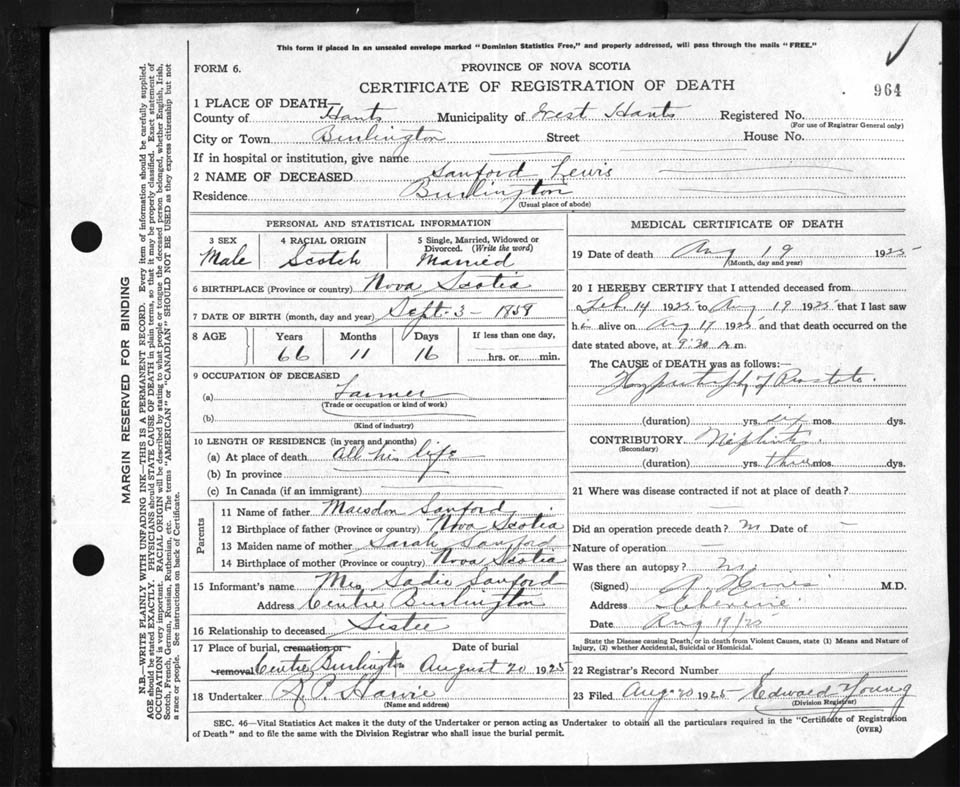 This form if placed in an unsealed envelope marked "Dominion Statistics Free," and properly addressed, will pass through the mails "FREE."
FORM 6.
PROVINCE OF NOVA SCOTIA
CERTIFICATE OF REGISTRATION OF DEATH
964
1 PLACE OF DEATH—
County of Hants Municipality of West Hants Registered No.
(For use of Registrar General only)
City or Town Burlington Street House No.
If in hospital or institution, give name
2 NAME OF DECEASED Sanford Lewis
Residence Burlington
(Usual place of abode)
PERSONAL AND STATISTICAL INFORMATION
3 SEX 4 RACIAL ORIGIN 5 Single, Married, Widowed or Divorced. (Write the word)
Male Scotch Married
6 BIRTHPLACE (Province or country) Nova Scotia
7 DATE OF BIRTH (month, day and year) Sept. 3 - 1858
8 AGE Years Months Days If less than one day,
66 11 16 hrs. or min.
9 OCCUPATION OF DECEASED
(a) Farmer
(Trade or occupation or kind of work)
(b)
(Kind of industry)
10 LENGTH OF RESIDENCE (in years and months)
(a) At place of death all his life
(b) In province
(c) In Canada (if an immigrant)
Parents
11 Name of father Sanford
12 Birthplace of father (Province or country) Nova Scotia
13 Maiden name of mother Sarah Sanford
14 Birthplace of mother (Province or country) Nova Scotia
15 Informant's name Mrs Sadie Sanford
Address Centre Burlington
16 Relationship to deceased Sister
17 Place of burial, cremation or removal Date of burial
Centre Burlington August 20 1925
18 Undertaker A P Harvie
(Name and address)
MEDICAL CERTIFICATE OF DEATH
19 Date of death Aug 19 1925
(Month, day and year)
20 I HEREBY CERTIFY that I attended deceased from
Feb. 14 1925 to Aug 19 1925 that I last saw
h alive on Aug 17 1925 and that death occurred on the
date stated above, at 9:30 A.m.
The CAUSE of DEATH was as follows:—
Hypertrophy of Prostate.
(duration) yrs. six mos. dys.
CONTRIBUTORY Nephritis
(Secondary)
(duration) yrs. three mos. dys.
21 Where was disease contracted if not at place of death?
Did an operation precede death? no Date of
Nature of operation
Was there an autopsy? no
(Signed) M.D.
Address
Date Aug 19/25
State the Disease causing Death, or in death from Violent Causes, state (1) Means and Nature of
Injury, (2) whether Accidental, Suicidal or Homicidal.
22 Registrar's Record Number 1
23 Filed Aug. 20 1925 Edward Young
(Division Registrar)
SEC. 46—Vital Statistics Act makes it the duty of the Undertaker or person acting as Undertaker to obtain all the particulars required in the "Certificate of Registration
of Death" and to file the same with the Division Registrar who shall issue the burial permit.
(OVER)
MARGIN RESERVED FOR BINDING
N.B.—WRITE PLAINLY WITH UNFADING INK—THIS IS A PERMANENT RECORD. Every item of information should be carefully supplied.
AGE should be stated EXACTLY. PHYSICIANS should STATE CAUSE OF DEATH in plain terms, so that it may be properly classified. Exact statement of
OCCUPATION is very important. RACIAL ORIGIN will be described by stating to what people or tongue the deceased person belonged, whether English, Irish,
Scotch, French, German, Russian, Ruthenian, etc. The terms "AMERICAN" or "CANADIAN" SHOULD NOT BE USED as they express citizenship but not
a race or people. See instructions on back of Certificate.